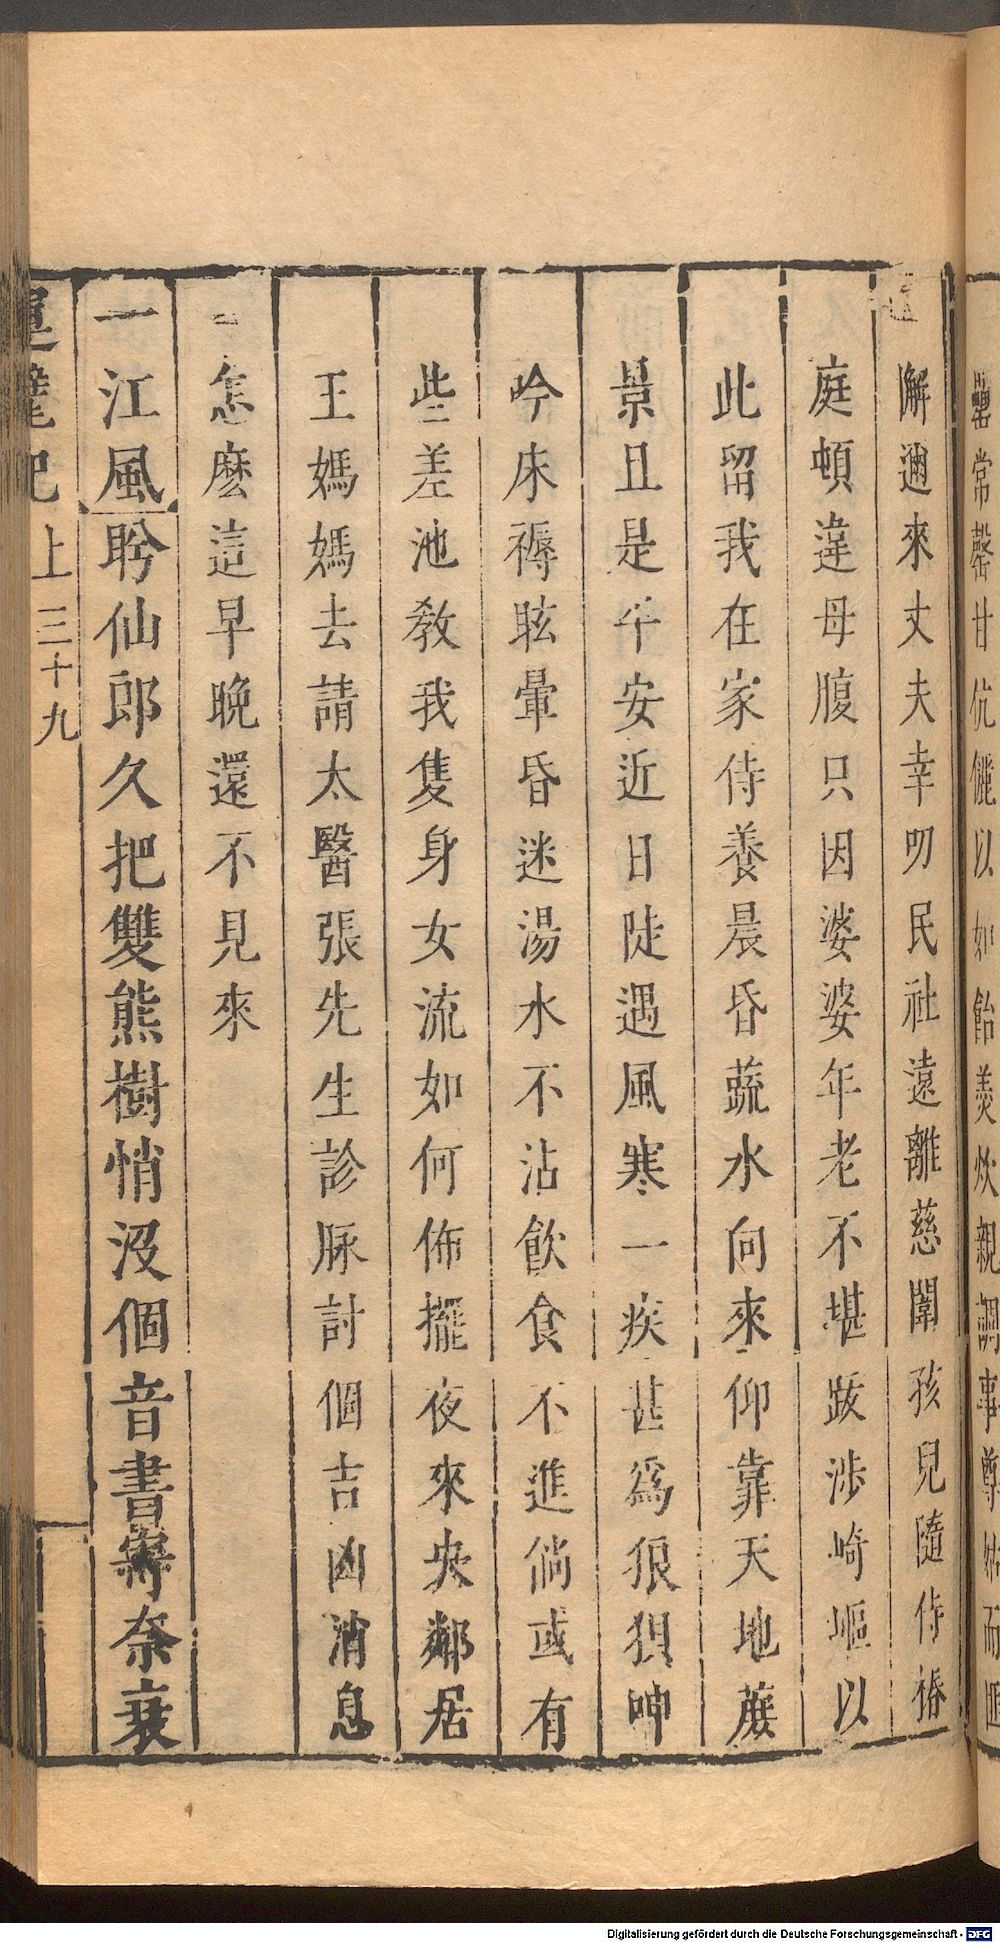 罍常罄甘伉儷以如飴羹炊親調事尊姑而匪
懈邇來丈夫幸叨民社遠離慈闈孩兒隨侍椿
庭頓違母腹只因婆婆年老不堪跋涉崎嶇以
此留我在家侍養晨昏蔬水向來仰靠天地蔭
景且是平安近日陡遇風寒一疾甚爲狼狽呻
吟床褥眩暈昏迷湯水不沾飲食不進倘或有
些差池教我隻身女流如何佈擺夜來央鄰居
王媽媽去請太醫張先生診脉討個吉凶消息
怎麽這早晚還不見來
一江風盻仙郎久把雙熊樹悄沒個音書寄奈衰
運甓記 上 三十九
Digitalisierung gefördert durch die Deutsche Forschungsgemeinschaft - DFG